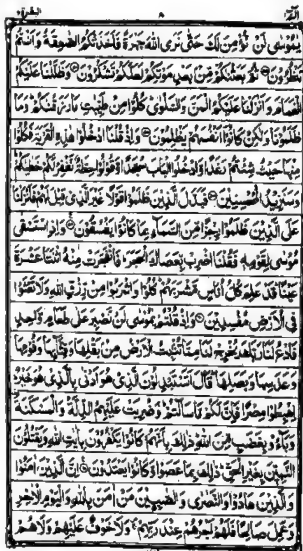 الٓمّٓ ٨ البقرة
يٰمُوْسٰى لَنْ نُّؤْمِنَ لَكَ حَتّٰى نَرَى اللّٰهَ جَهْرَةً فَاَخَذَتْكُمُ الصّٰعِقَةُ وَاَنْتُمْ
تَنْظُرُوْنَ ثُمَّ بَعَثْنٰكُمْ مِّنْۢ بَعْدِ مَوْتِكُمْ لَعَلَّكُمْ تَشْكُرُوْنَ وَظَلَّلْنَا عَلَيْكُمُ
الْغَمَامَ وَاَنْزَلْنَا عَلَيْكُمُ الْمَنَّ وَالسَّلْوٰى كُلُوْا مِنْ طَيِّبٰتِ مَا رَزَقْنٰكُمْ وَمَا
ظَلَمُوْنَا وَلٰكِنْ كَانُوْٓا اَنْفُسَهُمْ يَظْلِمُوْنَ وَاِذْ قُلْنَا ادْخُلُوْا هٰذِهِ الْقَرْيَةَ فَكُلُوْا
مِنْهَا حَيْثُ شِئْتُمْ رَغَدًا وَّادْخُلُوا الْبَابَ سُجَّدًا وَّقُوْلُوْا حِطَّةٌ نَّغْفِرْ لَكُمْ خَطٰيٰكُمْ
وَسَنَزِيْدُ الْمُحْسِنِيْنَ فَبَدَّلَ الَّذِيْنَ ظَلَمُوْا قَوْلًا غَيْرَ الَّذِيْ قِيْلَ لَهُمْ فَاَنْزَلْنَا
عَلَى الَّذِيْنَ ظَلَمُوْا رِجْزًا مِّنَ السَّمَآءِ بِمَا كَانُوْا يَفْسُقُوْنَ وَاِذِ اسْتَسْقٰى
مُوْسٰى لِقَوْمِهٖ فَقُلْنَا اضْرِبْ بِّعَصَاكَ الْحَجَرَ فَانْفَجَرَتْ مِنْهُ اثْنَتَا عَشْرَةَ
عَيْنًا قَدْ عَلِمَ كُلُّ اُنَاسٍ مَّشْرَبَهُمْ كُلُوْا وَاشْرَبُوْا مِنْ رِّزْقِ اللّٰهِ وَلَا تَعْثَوْا
فِى الْاَرْضِ مُفْسِدِيْنَ وَاِذْ قُلْتُمْ يٰمُوْسٰى لَنْ نَّصْبِرَ عَلٰى طَعَامٍ وَّاحِدٍ
فَادْعُ لَنَا رَبَّكَ يُخْرِجْ لَنَا مِمَّا تُنْۢبِتُ الْاَرْضُ مِنْۢ بَقْلِهَا وَقِثَّآئِهَا وَفُوْمِهَا
وَعَدَسِهَا وَبَصَلِهَا قَالَ اَتَسْتَبْدِلُوْنَ الَّذِيْ هُوَ اَدْنٰى بِالَّذِيْ هُوَ خَيْرٌ
اِهْبِطُوْا مِصْرًا فَاِنَّ لَكُمْ مَّا سَاَلْتُمْ وَضُرِبَتْ عَلَيْهِمُ الذِّلَّةُ وَالْمَسْكَنَةُ
وَبَآءُوْ بِغَضَبٍ مِّنَ اللّٰهِ ذٰلِكَ بِاَنَّهُمْ كَانُوْا يَكْفُرُوْنَ بِاٰيٰتِ اللّٰهِ وَيَقْتُلُوْنَ
النَّبِيّٖنَ بِغَيْرِ الْحَقِّ ذٰلِكَ بِمَا عَصَوْا وَّكَانُوْا يَعْتَدُوْنَ اِنَّ الَّذِيْنَ اٰمَنُوْا
وَالَّذِيْنَ هَادُوْا وَالنَّصٰرٰى وَالصّٰبِـِٕيْنَ مَنْ اٰمَنَ بِاللّٰهِ وَالْيَوْمِ الْاٰخِرِ
وَعَمِلَ صَالِحًا فَلَهُمْ اَجْرُهُمْ عِنْدَ رَبِّهِمْ وَلَا خَوْفٌ عَلَيْهِمْ وَلَا هُمْ